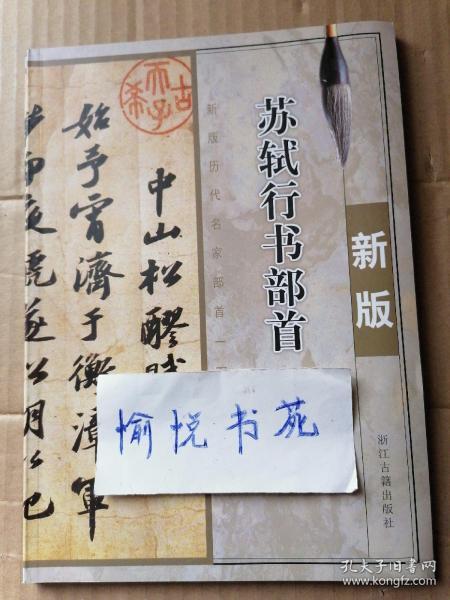 苏轼行书部首
新版
新版历代名家部首一
浙江古籍出版社
古稀天子
中山松醪賦
始予宵濟于衡漳軍
中山松醪
愉悦书苑
孔夫子旧书网
www.kongfz.com